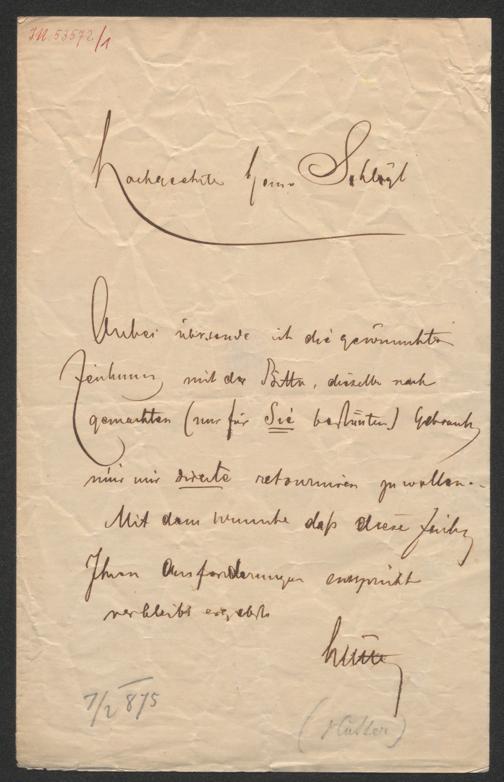 IN. 53572/1
Hochgeehrter Herr Schlögl
Anbei übersende ich die gewünschte
Zeichnung mit der Bitte, dieselbe nach
gemachten (nur für Sie bestimten) Gebrauch
nur mir directe retourniren zu wollen.
Mit dem Wunsche daß diese Zeichg
Ihren Anforderungen entspricht
verbleibt ergebst
7/2 875
(Hütter)